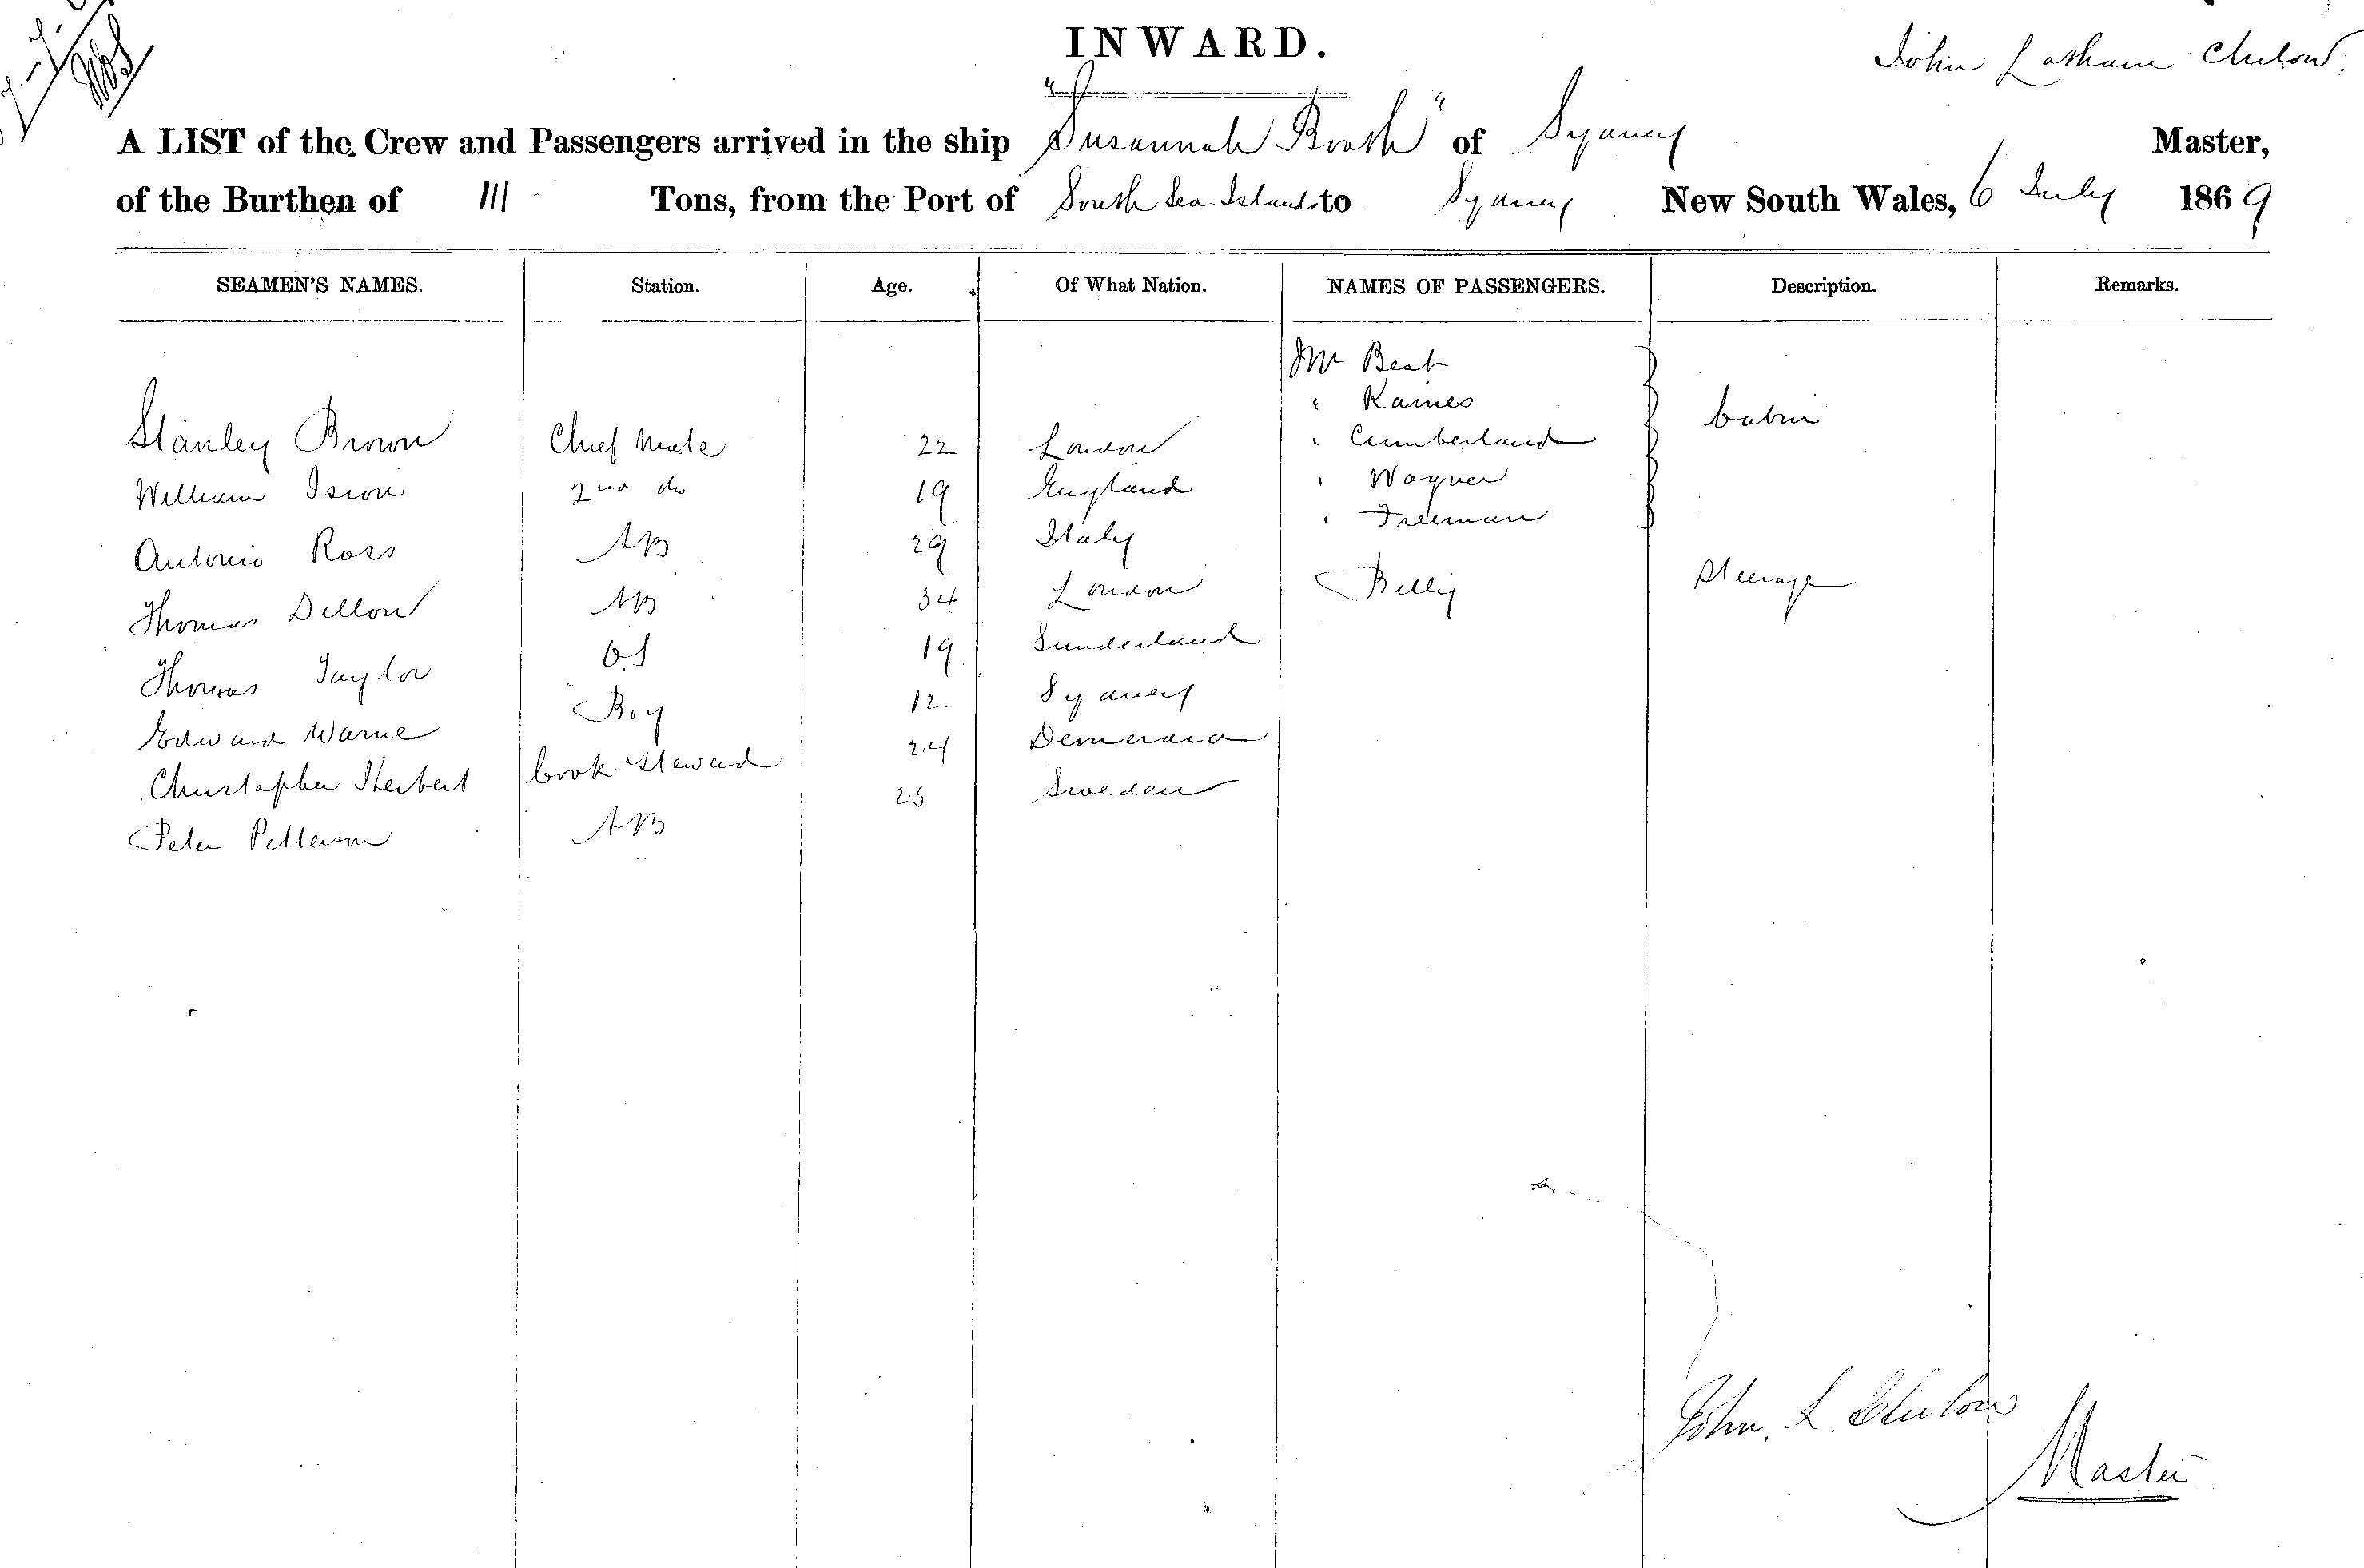 INWARD.
John Latham Clulow.
A LIST of the Crew and Passengers arrived in the ship "Susannah Booth" of Sydney Master,
of the Burthen of 111 Tons, from the Port of South Sea Islands to Sydney New South Wales, 6 July 1869
SEAMEN'S NAMES. Station. Age. Of What Nation. NAMES OF PASSENGERS. Description. Remarks.
Mr Beat
" Kaines
Stanley Brown Chief Mate 22 London " Cumberland Cabin
William 2nd do 19 England " Wagner
" Freeman
Antonio Ross AB 29 Italy
Thomas Dillon AB 34 London Billy Steerage
Thomas Taylor OS 19 Sunderland
Edward Warne Boy 12 Sydney
Christopher Herbert Cook Steward 24 Demerara
Peter Petterson AB 25 Sweden
John. L. Clulow
Master